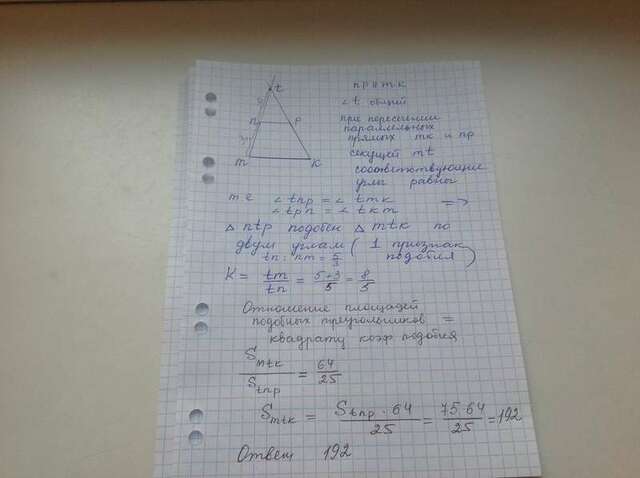 t
n
p
m
k
np ıı mk
∠t общий
при пересечении
параллельных
прямых mk и np
секущей mt
соответствующие
углы равны
т е ∠tnp = ∠tmk
∠tpn = ∠tkm =>
△ntp подобен △mtk по
двум углам ( 1 признак
подобия )
tn : nm = 5/3
K = tm/tn = 5+3/5 = 8/5
Отношение площадей
подобных треугольников =
квадрату коэф подобия
Smtk/Stnp = 64/25
Smtk = Stnp · 64/25 = 75·64/25 = 192
Ответ 192